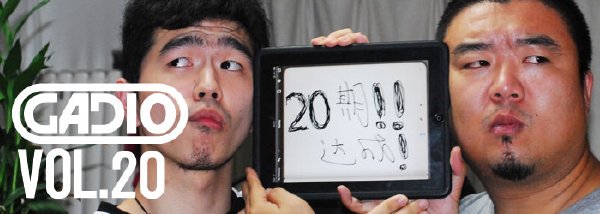 GADIO
VOL.20
20期!!
达成!